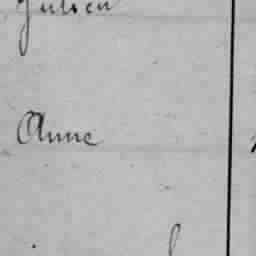 Julien
Anne